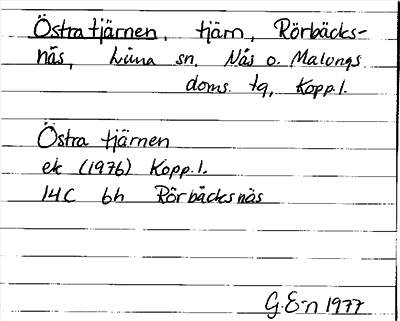 Östra tjärnen, tjärn, Rörbäcks-
näs, Lima sn. Nås o. Malungs
doms. tg, Kopp.l.
Östra tjärnen
ek (1976) Kopp.l.
14C 6h Rörbäcksnäs
G.E-n 1977